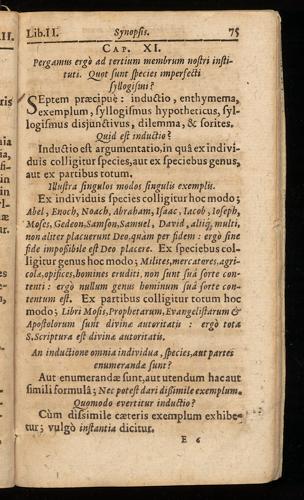 Lib. II. Synopsis. 75
CAP. XI.
Pergamus ergò ad tertium membrum nostri insti-
tuti. Quot sunt species imperfecti
syllogismi?
SEptem præcipuè: inductio, enthymema,
exemplum, syllogismus hypotheticus, syl-
logismus disjunctivus, dilemma, & sorites.
Quid est inductio?
Inductio est argumentatio, in quâ ex indivi-
duis colligitur species, aut ex speciebus genus,
aut ex partibus totum.
Illustra singulos modos singulis exemplis.
Ex individuis species colligitur hoc modo;
Abel, Enoch, Noach, Abraham, Isaac, Iacob, Ioseph,
Moses, Gedeon, Samson, Samuel, David, aliiq́; multi,
non aliter placuerunt Deo, quàm per fidem: ergò sine
fide impossibile est Deo placere. Ex speciebus col-
ligitur genus hoc modo; Milites, mercatores, agri-
colæ, opifices, homines eruditi, non sunt suâ sorte con-
tenti: ergò nullum genus hominum suâ sorte con-
tentum est. Ex partibus colligitur totum hoc
modo; Libri Mosis, Prophetarum, Evangelistarum &
Apostolorum sunt divinæ autoritatis: ergò tota
S. Scriptura est divinæ autoritatis.
An inductione omnia individua, species, aut partes
enumerandæ sunt?
Aut enumerandæ sunt, aut utendum hac aut
simili formulâ; Nec potest dari dissimile exemplum.
Quomodo evertitur inductio?
Cùm dissimile cæteris exemplum exhibe-
tur; vulgò instantia dicitur.
E 6